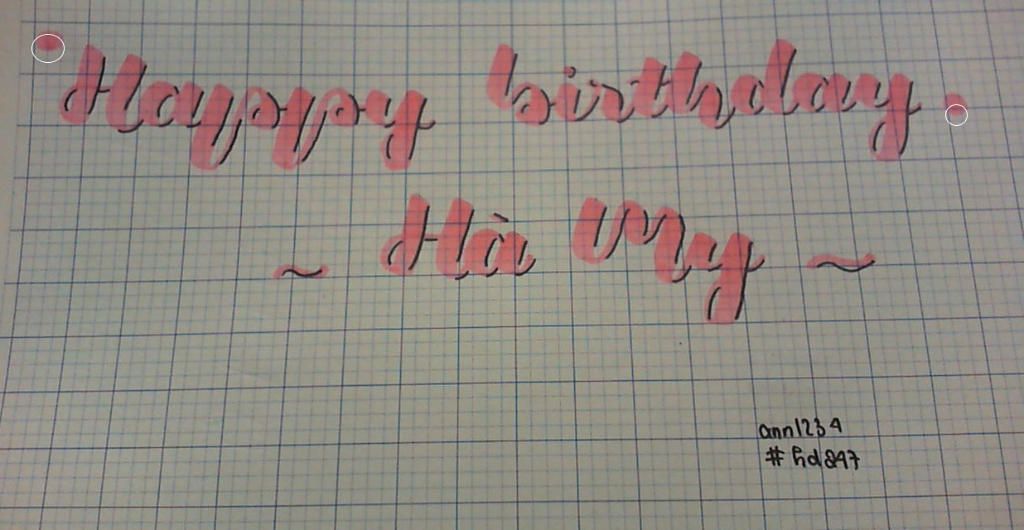 Happy birthday
~ Hà My ~
ann1234
#hd247